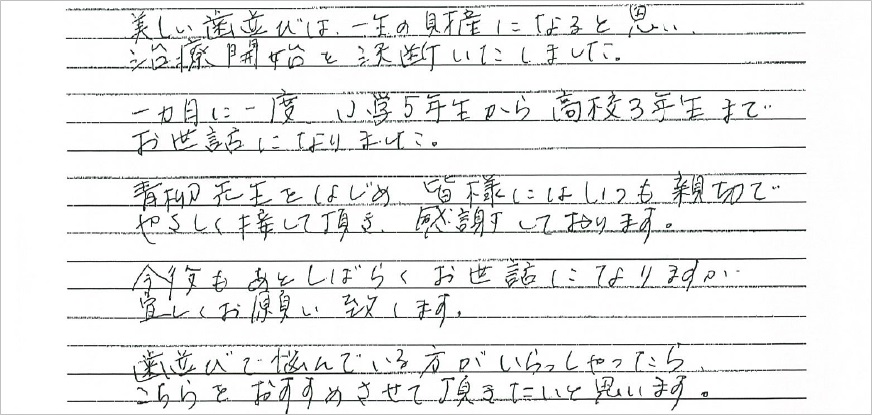 美しい歯並びは、一生の財産になると思い、
治療開始を決断いたしました。
一ヵ月に一度、小学5年生から高校3年生まで
お世話になりました。
青柳先生をはじめ、皆様にはいつも親切で
やさしく接して頂き、感謝しております。
今後もあとしばらくお世話になりますが
宜しくお願い致します。
歯並びで悩んでいる方がいらっしゃったら、
こちらをおすすめさせて頂きたいと思います。